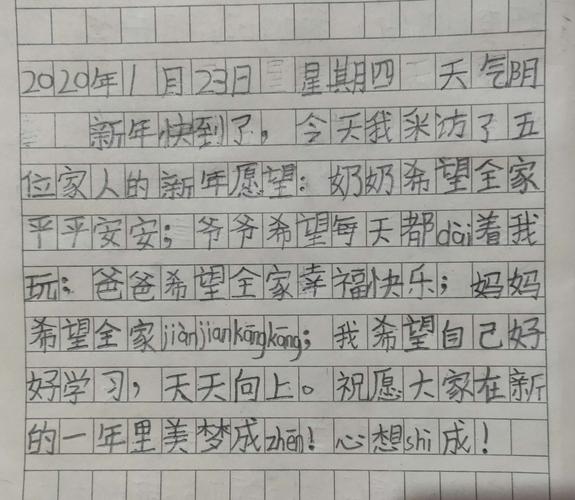 2020年1月23日 星期四 天气阴
新年快到了，今天我采访了五
位家人的新年愿望：奶奶希望全家
平平安安；爷爷希望每天都dài着我
玩；爸爸希望全家幸福快乐；妈妈
希望全家jiànjiankāngkāng；我希望自己好
好学习，天天向上。祝愿大家在新
的一年里美梦成zhēn！心想shì成！